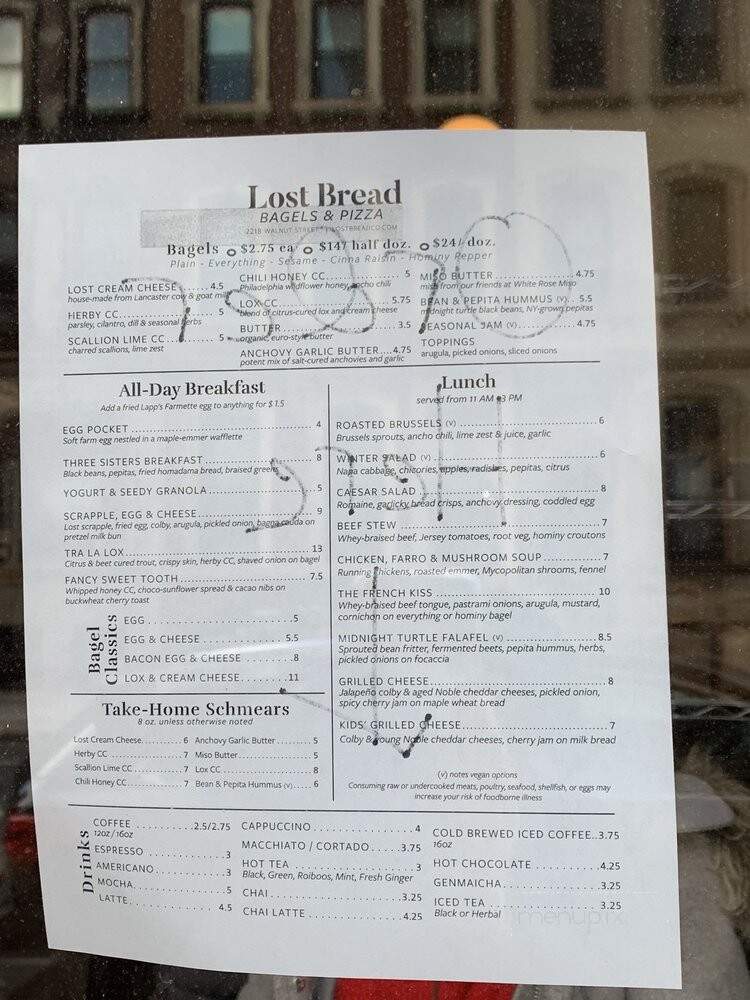 Lost Bread
BAGELS & PIZZA
2218 WALNUT STREET LOSTBREADCO.COM
Bagels o $2.75 ea o $14/ half doz. o $24/ doz.
Plain - Everything - Sesame - Cinna Raisin - Hominy Pepper
LOST CREAM CHEESE 4.5
house-made from Lancaster cow & goat milk
HERBY CC 5
parsley, cilantro, dill & seasonal herbs
SCALLION LIME CC 5
charred scallions, lime zest
CHILI HONEY CC 5
Philadelphia wildflower honey, ancho chili
LOX CC 5.75
blend of citrus-cured lox and cream cheese
BUTTER 3.5
organic, euro-style butter
ANCHOVY GARLIC BUTTER 4.75
potent mix of salt-cured anchovies and garlic
MISO BUTTER 4.75
miso from our friends at White Rose Miso
BEAN & PEPITA HUMMUS (V) 5.5
midnight turtle black beans, NY-grown pepitas
SEASONAL JAM (V) 4.75
TOPPINGS
arugula, picked onions, sliced onions
All-Day Breakfast
Add a fried Lapp's Farmette egg to anything for $1.5
EGG POCKET 4
Soft farm egg nestled in a maple-emmer wafflette
THREE SISTERS BREAKFAST 8
Black beans, pepitas, fried homadama bread, braised greens
YOGURT & SEEDY GRANOLA 5
SCRAPPLE, EGG & CHEESE 9
Lost scrapple, fried egg, colby, arugula, pickled onion, bagna cauda on
pretzel milk bun
TRA LA LOX 13
Citrus & beet cured trout, crispy skin, herby CC, shaved onion on bagel
FANCY SWEET TOOTH 7.5
Whipped honey CC, choco-sunflower spread & cacao nibs on
buckwheat cherry toast
Bagel
Classics
EGG 5
EGG & CHEESE 5.5
BACON EGG & CHEESE 8
LOX & CREAM CHEESE 11
Take-Home Schmears
8 oz. unless otherwise noted
Lost Cream Cheese 6
Herby CC 7
Scallion Lime CC 7
Chili Honey CC 7
Anchovy Garlic Butter 5
Miso Butter 5
Lox CC 8
Bean & Pepita Hummus (V) 6
Lunch
served from 11 AM - 3 PM
ROASTED BRUSSELS (V) 6
Brussels sprouts, ancho chili, lime zest & juice, garlic
WINTER SALAD (V) 6
Napa cabbage, chicories, apples, radishes, pepitas, citrus
CAESAR SALAD 8
Romaine, garlicky bread crisps, anchovy dressing, coddled egg
BEEF STEW 7
Whey-braised beef, Jersey tomatoes, root veg, hominy croutons
CHICKEN, FARRO & MUSHROOM SOUP 7
Running chickens, roasted emmer, Mycopolitan shrooms, fennel
THE FRENCH KISS 10
Whey-braised beef tongue, pastrami onions, arugula, mustard,
cornichon on everything or hominy bagel
MIDNIGHT TURTLE FALAFEL (V) 8.5
Sprouted bean fritter, fermented beets, pepita hummus, herbs,
pickled onions on focaccia
GRILLED CHEESE 8
Jalapeño colby & aged Noble cheddar cheeses, pickled onion,
spicy cherry jam on maple wheat bread
KIDS' GRILLED CHEESE 7
Colby & young Noble cheddar cheeses, cherry jam on milk bread
(v) notes vegan options
Consuming raw or undercooked meats, poultry, seafood, shellfish, or eggs may
increase your risk of foodborne illness
Drinks
COFFEE 2.5/2.75
12oz/16oz
ESPRESSO 3
AMERICANO 3
MOCHA 5
LATTE 4.5
CAPPUCCINO 4
MACCHIATO / CORTADO 3.75
HOT TEA 3
Black, Green, Roiboos, Mint, Fresh Ginger
CHAI 3.25
CHAI LATTE 4.25
COLD BREWED ICED COFFEE 3.75
16oz
HOT CHOCOLATE 4.25
GENMAICHA 3.25
ICED TEA 3.25
Black or Herbal
menupix